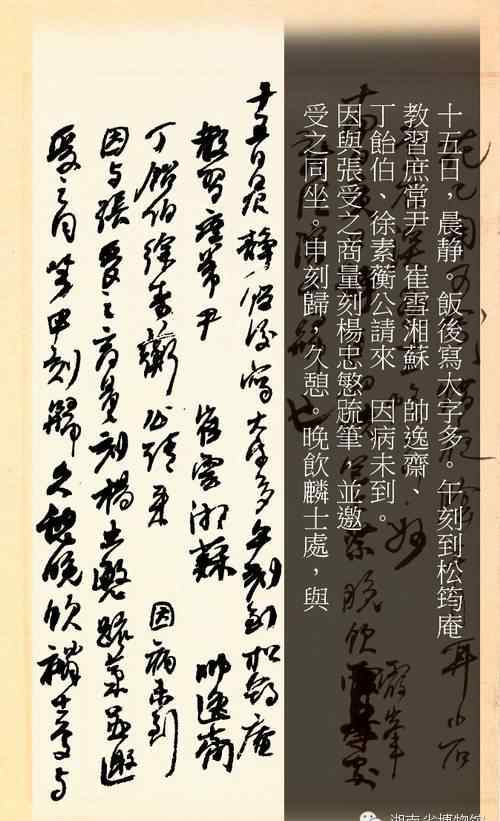 十五日，晨静。飯後寫大字多。午刻到松筠庵
教習庶常尹　崔雪湘蘇　帥逸齋、
丁飴伯、徐素蘅公請來　因病未到。
因與張受之商量刻楊忠愍䟽筆，並邀
受之同坐。申刻歸，久憩。晚飲麟士處，與
十五日晨靜飯後寫大字多午刻到松筠庵
教習庶常尹　崔雪湘蘇　帥逸齋
丁飴伯徐素蘅公請來　因病未到
因与張受之商量刻楊忠愍䟽筆並邀
受之同坐申刻歸久憩晚飲麟士處与
湖南省博物館